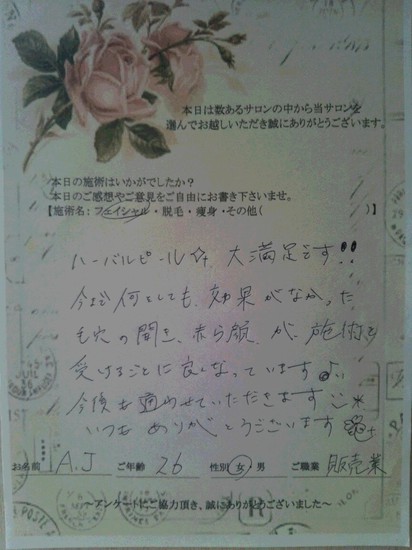 本日は数あるサロンの中から当サロンを
選んでお越しいただき誠にありがとうございます。
本日の施術はいかがでしたか？
本日のご感想やご意見をご自由にお書き下さいませ。
【施術名：フェイシャル・脱毛・痩身・その他（ ）】
ハーバルピール☆、大満足です!!
今まで何をしても、効果がなかった
毛穴の開き、赤ら顔、が、施術を
受けるごとに良くなっています♪
今後も通わせていただきます
いつもありがとうございます
お名前 A.J ご年齢 26 性別 女・男 ご職業 販売業
～アンケートにご協力頂き、誠にありがとうございました～